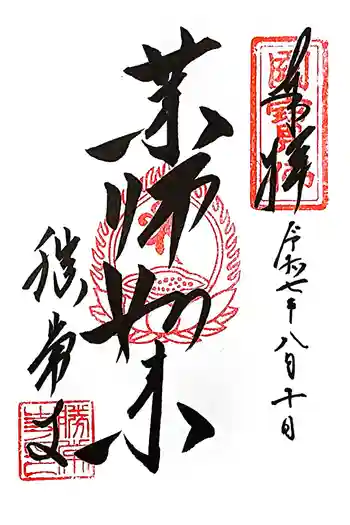 奉拝
令和七年八月十日
薬師如来
勝常寺